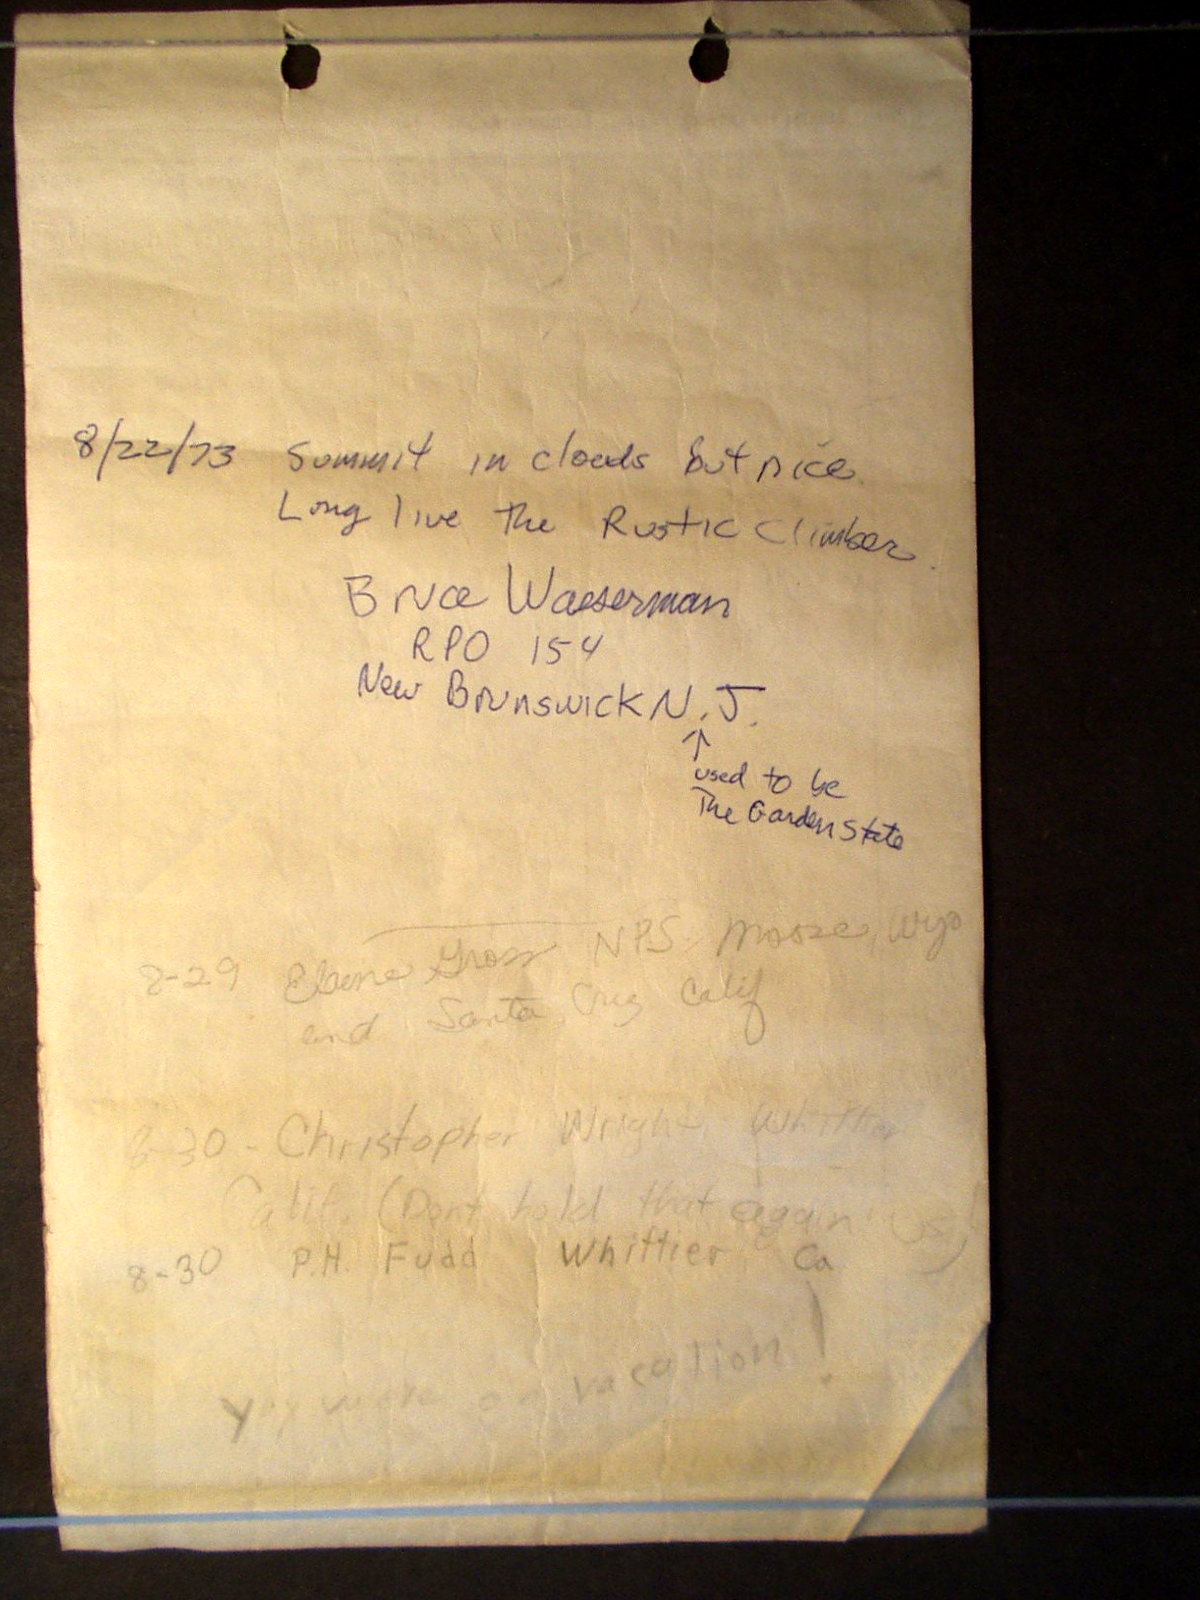 8/22/73 Summit in clouds but nice.
Long live the Rustic Climber.
Bruce Wasserman
RPO 154
New Brunswick N.J.
↑
used to be
The Garden State
8-29 Elaine Gross NPS. Moose, Wyo
and Santa Cruz Calif
8-30 - Christopher Wright, Whittier
Calif. (Dont hold that again' us)!
8-30 P.H. Fudd Whittier, Ca
on vacation!